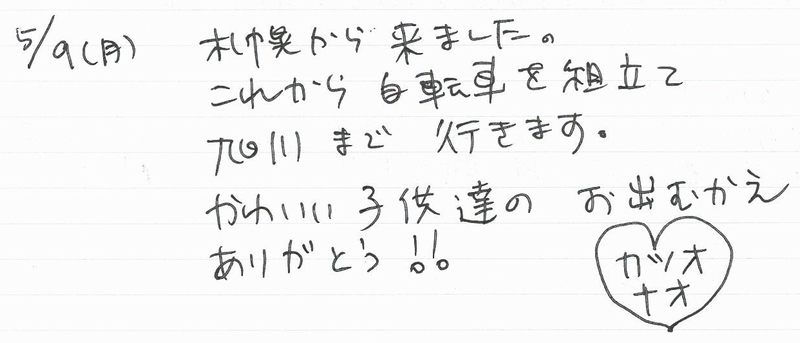 5/9(月) 札幌から来ました。
これから自転車を組立て
旭川まで 行きます。
かわいい子供達の お出むかえ
ありがとう!!
カツオ
ナオ